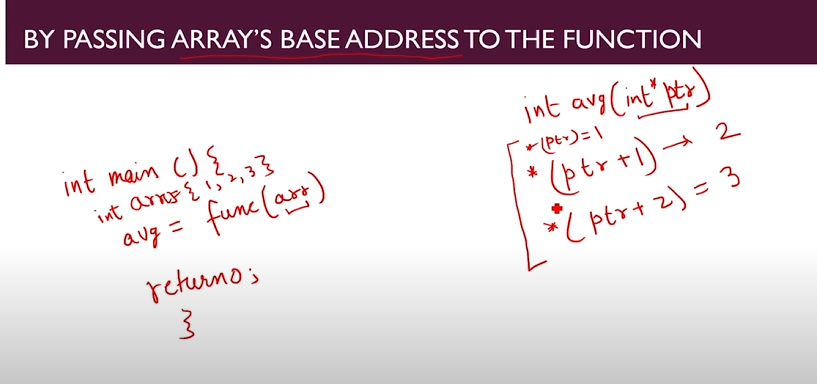 BY PASSING ARRAY'S BASE ADDRESS TO THE FUNCTION
int main () {
int arr={1,2,3}
avg = func(arr)
return0;
}
int avg(int* ptr)
*(ptr)=1
*(ptr+1) → 2
*(ptr+2) = 3